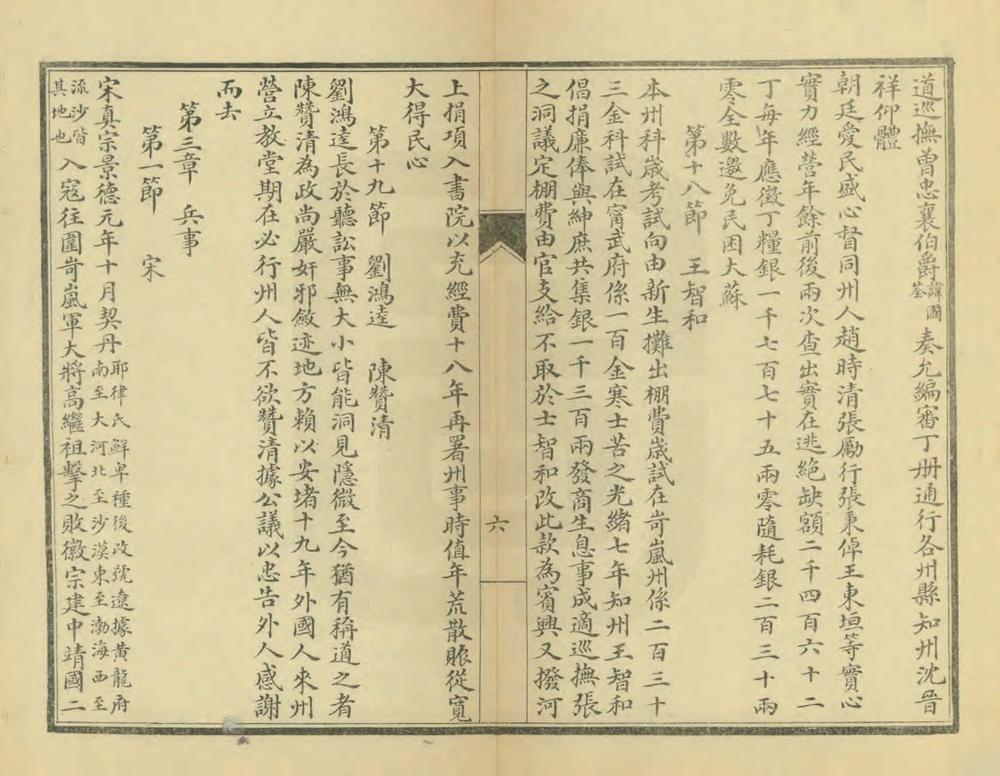 道巡撫曾忠襄伯爵諱國荃奏允編審丁册通行各州縣知州沈晉
祥仰體
朝廷愛民盛心督同州人趙時清張勵行張秉倬王東垣等實心
實力經營年餘前後兩次查出實在逃絕缺額二千四百六十二
丁每年應徵丁糧銀一千七百七十五兩零隨耗銀二百三十兩
零全數邀免民困大蘇
第十八節 王智和
本州科歲考試向由新生攤出棚費歲試在岢嵐州係二百三十
三金科試在甯武府係一百金寒士苦之光緒七年知州王智和
倡捐廉俸與紳庶共集銀一千三百兩發商生息事成適巡撫張
之洞議定棚費由官支給不取於士智和改此款為賓興又撥河
六
上捐項入書院以充經費十八年再署州事時值年荒散賑從寬
大得民心
第十九節 劉鴻逵 陳贊清
劉鴻逵長於聽訟事無大小皆能洞見隱微至今猶有稱道之者
陳贊清為政尚嚴奸邪斂迹地方賴以安堵十九年外國人來州
營立教堂期在必行州人皆不欲贊清據公議以忠告外人感謝
而去
第三章 兵事
第一節 宋
宋真宗景德元年十月契丹耶律氏鮮卑種後改號遼據黃龍府南至大河北至沙漠東至渤海西至
流沙皆其地也入寇往圍岢嵐軍大將高繼祖擊之敗徽宗建中靖國二